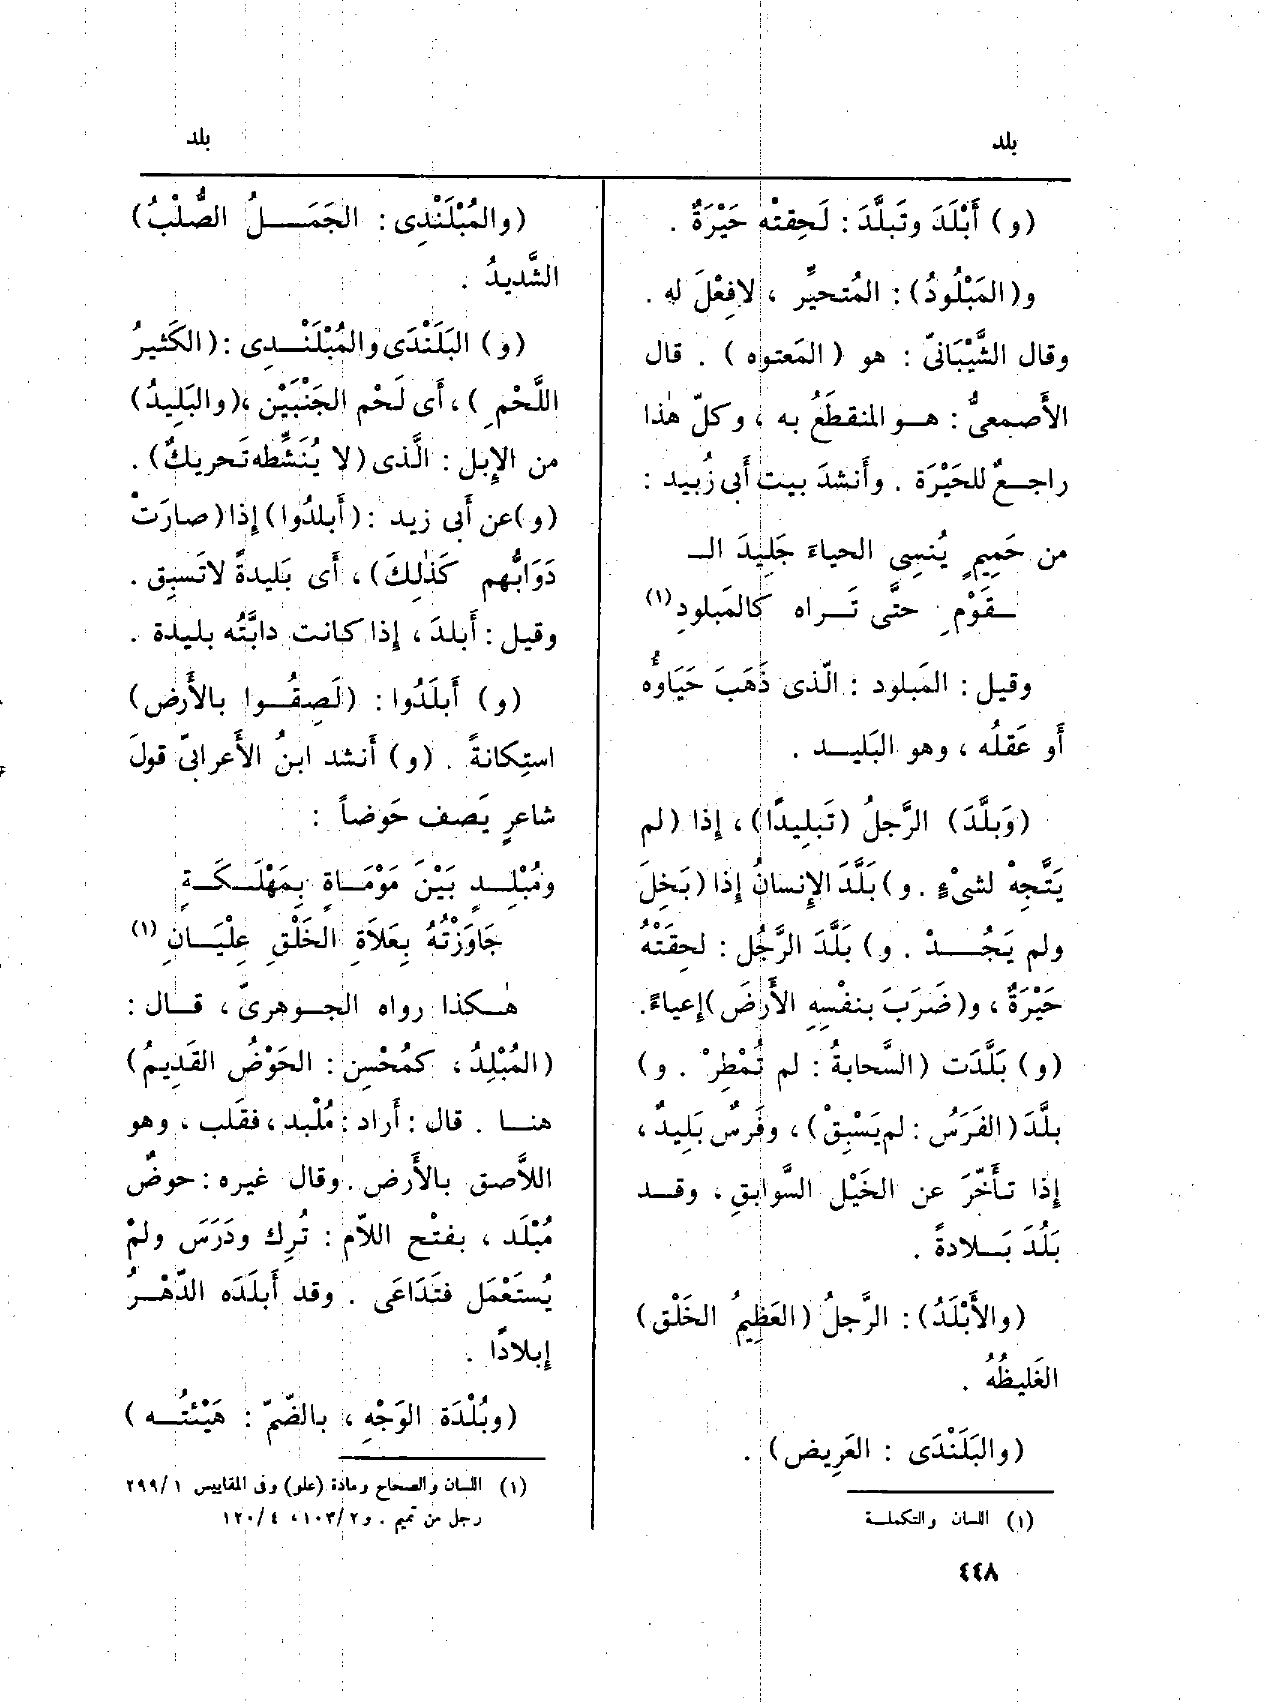 بلد
بلد
(و) أَبْلَدَ وتَبلَّدَ : لَحِقتْه حَيْرَةٌ .
و(المَبْلُودُ) : المُتحيِّر ، لافِعْلَ له .
وقال الشَّيْبَانىّ : هو (المَعتوه) . قال
الأَصمعىُّ : هــو المنقطَعُ به ، وكلّ هٰذا
راجــعٌ للحَيْرَة . وأَنشدَ بيت أَبى زُبيد :
من حَمِيمٍ يُنسِى الحياءَ جَلِيدَ الـ
ـقَوْمِ حتَّى تَــراه كالمَبلودِ (١)
وقيل : المَبلود : الَّذى ذَهَبَ حَيَاوُه
أَو عَقلُه ، وهو البَليـد .
(وَبلَّدَ) الرَّجلُ (تَبليدًا) ، إِذا (لم
يَتَّجِهْ لشىْءٍ . و) بَلَّدَ الإِنسانُ إِذا (بَخِلَ
ولم يَجُــدْ . و) بَلَّدَ الرَّجُل : لحِقتْهُ
حَيْرَةٌ ، و(ضَرَبَ بنفْسِهِ الأَرضَ) إِعياءً .
(و) بَلَّدَت (السَّحابةُ : لم تُمْطِرْ . و)
بلَّدَ (الفَرَسُ : لم يَسْبِقْ) ، وفَرسٌ بَلِيدٌ ،
إِذا تـأَخّرَ عن الخَيْل السَّوابِقِ ، وقــد
بَلُدَ بَــلادةً .
(والأَبْلَدُ) : الرَّجلُ (العَظِيمُ الخَلْقِ)
الغَليظُهُ .
(والبَلَنْدَى : العَرِيض) .
(١) اللسان والتكملـة
(والمُبْلَنْدِى : الجَمَــلُ الصُّلْبُ)
الشَّديدُ .
(و) البَلَنْدَى والمُبْلَنْــدِى : (الكَثيرُ
اللَّحْمِ) ، أَى لَحْم الجَنْبَيْن ، (والبَلِيدُ)
من الإِبل : الَّذى (لا يُنَشِّطه تَحريكٌ) .
(و) عن أَبى زيد : (أَبلدُوا) إِذا (صارَتْ
دَوَابُّهم كَذٰلِكَ) ، أَى بَليدةً لاتَسبِق .
وقيل : أَبلدَ ، إِذا كانت دابَّتُه بليدة .
(و) أَبلَدُوا : (لَصِقُــوا بالأَرض)
استِكانةً . (و) أَنشد ابنُ الأَعرابىّ قولَ
شاعرٍ يَصف حَوضاً :
ومُبْلِــدٍ بَيْنَ مَوْمَــاةٍ بِمَهْلَــكَــةٍ
جَاوَزْتُهُ بِعَلاَةِ الخَلْقِ عِلْيَــانِ (١)
هٰــكذا رواه الجــوهرىّ ، قــال :
(المُبْلِدُ ، كمُحْسِن : الحَوْضُ القَدِيمُ)
هنــا . قال : أَراد : مُلْبد ، فقَلب ، وهو
اللاَّصق بالأَرض . وقال غيره : حوضٌ
مُبْلَد ، بفتْح اللاّم : تُرِك ودَرَسَ ولمْ
يُستَعْمَل فتَدَاعَى . وقد أَبلَدَه الدَّهْــرُ
إِبلادًا .
(وبُلْدَة الوَجْهِ ، بالضّمّ : هَيْئَتُــه)
(١) اللسان والصحاح ومادة (علو) وفى المقاييس ١/٢٩٩
رجل من تميم . و٢/١٠٣، ٤/١٢٠
٤٤٨